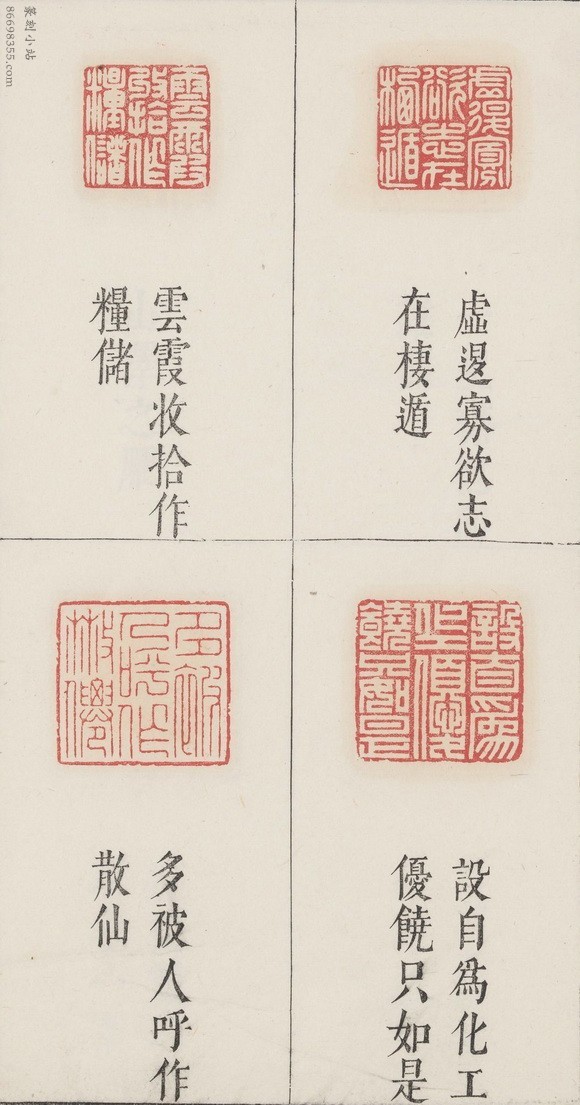 虛遐寡欲志
在棲遁
雲霞收拾作
糧儲
設自爲化工
優饒只如是
多被人呼作
散仙
篆刻小站
86698355.com